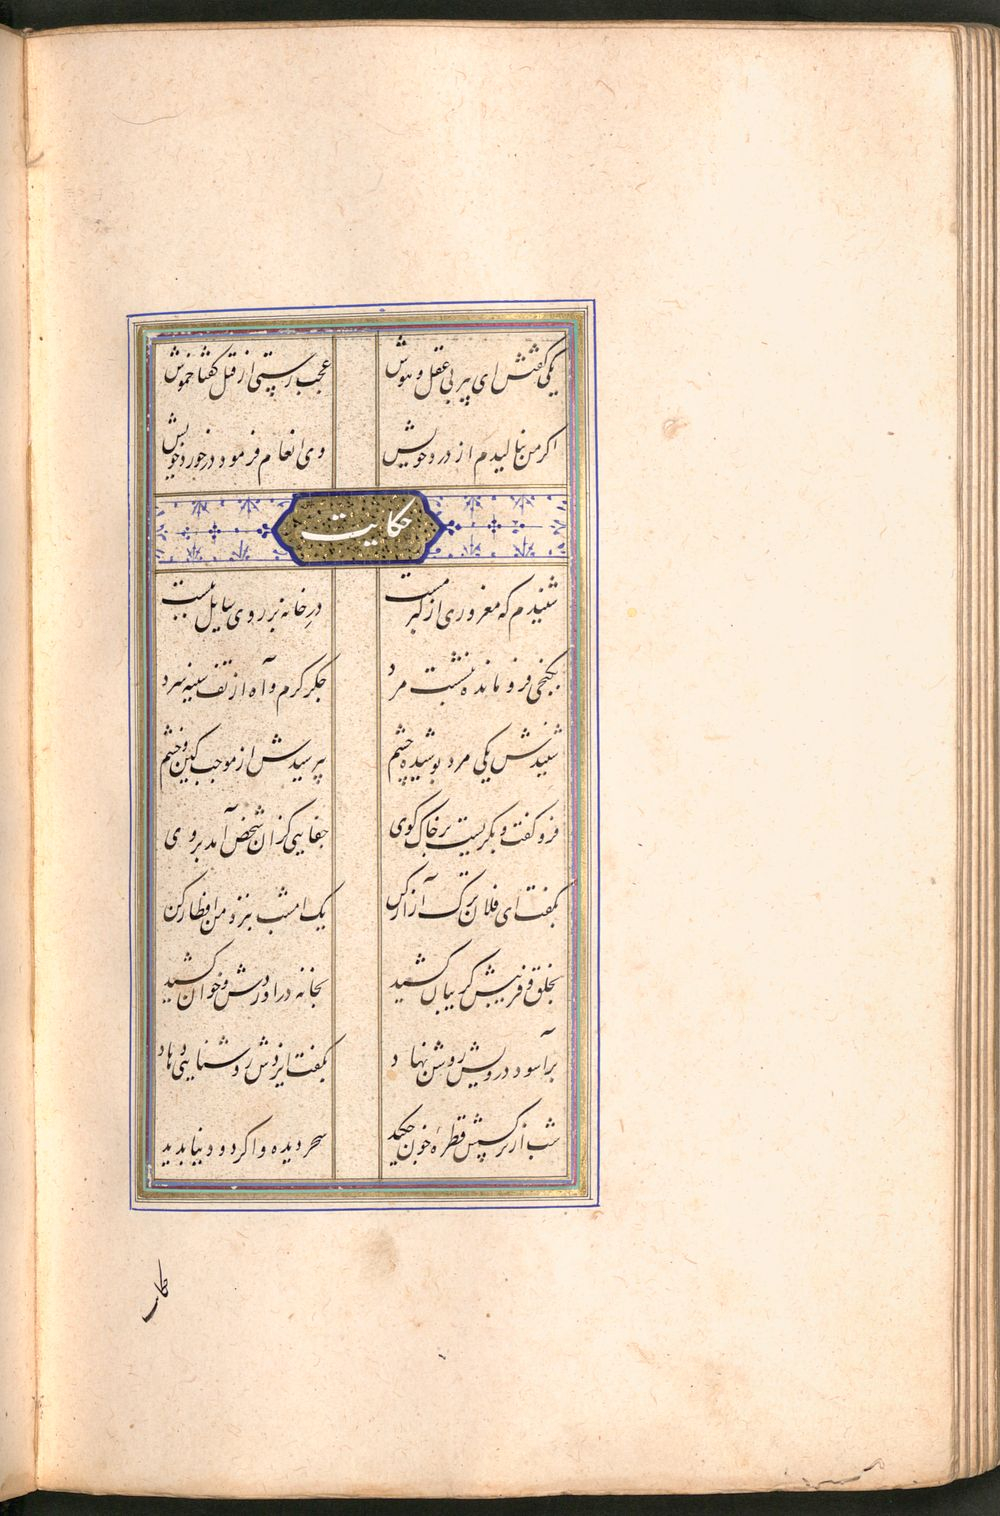 یکی گفتش ای پیر بی عقل و هوش عجب رستی از قتل گفتا خموش
اکر من بنالیدم از درد خویش وی انعام فرمود در خورد خویش
حکایت
شنیدم که مغروری از کبر مست در خانه بر روی سایل ببست
بکنجی فرو مانده بنشست مرد جکر کرم و آه از تف سینه سرد
شنیدش یکی مرد پوشیده چشم بپرسیدش از موجب کین و خشم
فرو کفت و بکریست بر خاک کوی جفایی کزان شخص آمد بروی
بکفت ای فلان ترک آزار کن یک امشب بنزد من افطار کن
بخلق و فریبش کریبان کشید بخانه در آوردش و خوان کشید
بر آسود درویش روشن نهاد بکفت ایزدش روشنایی دهاد
شب از نرکسش قطرهٔ خون چکید سحر دیده وا کرد و دنیا بدید